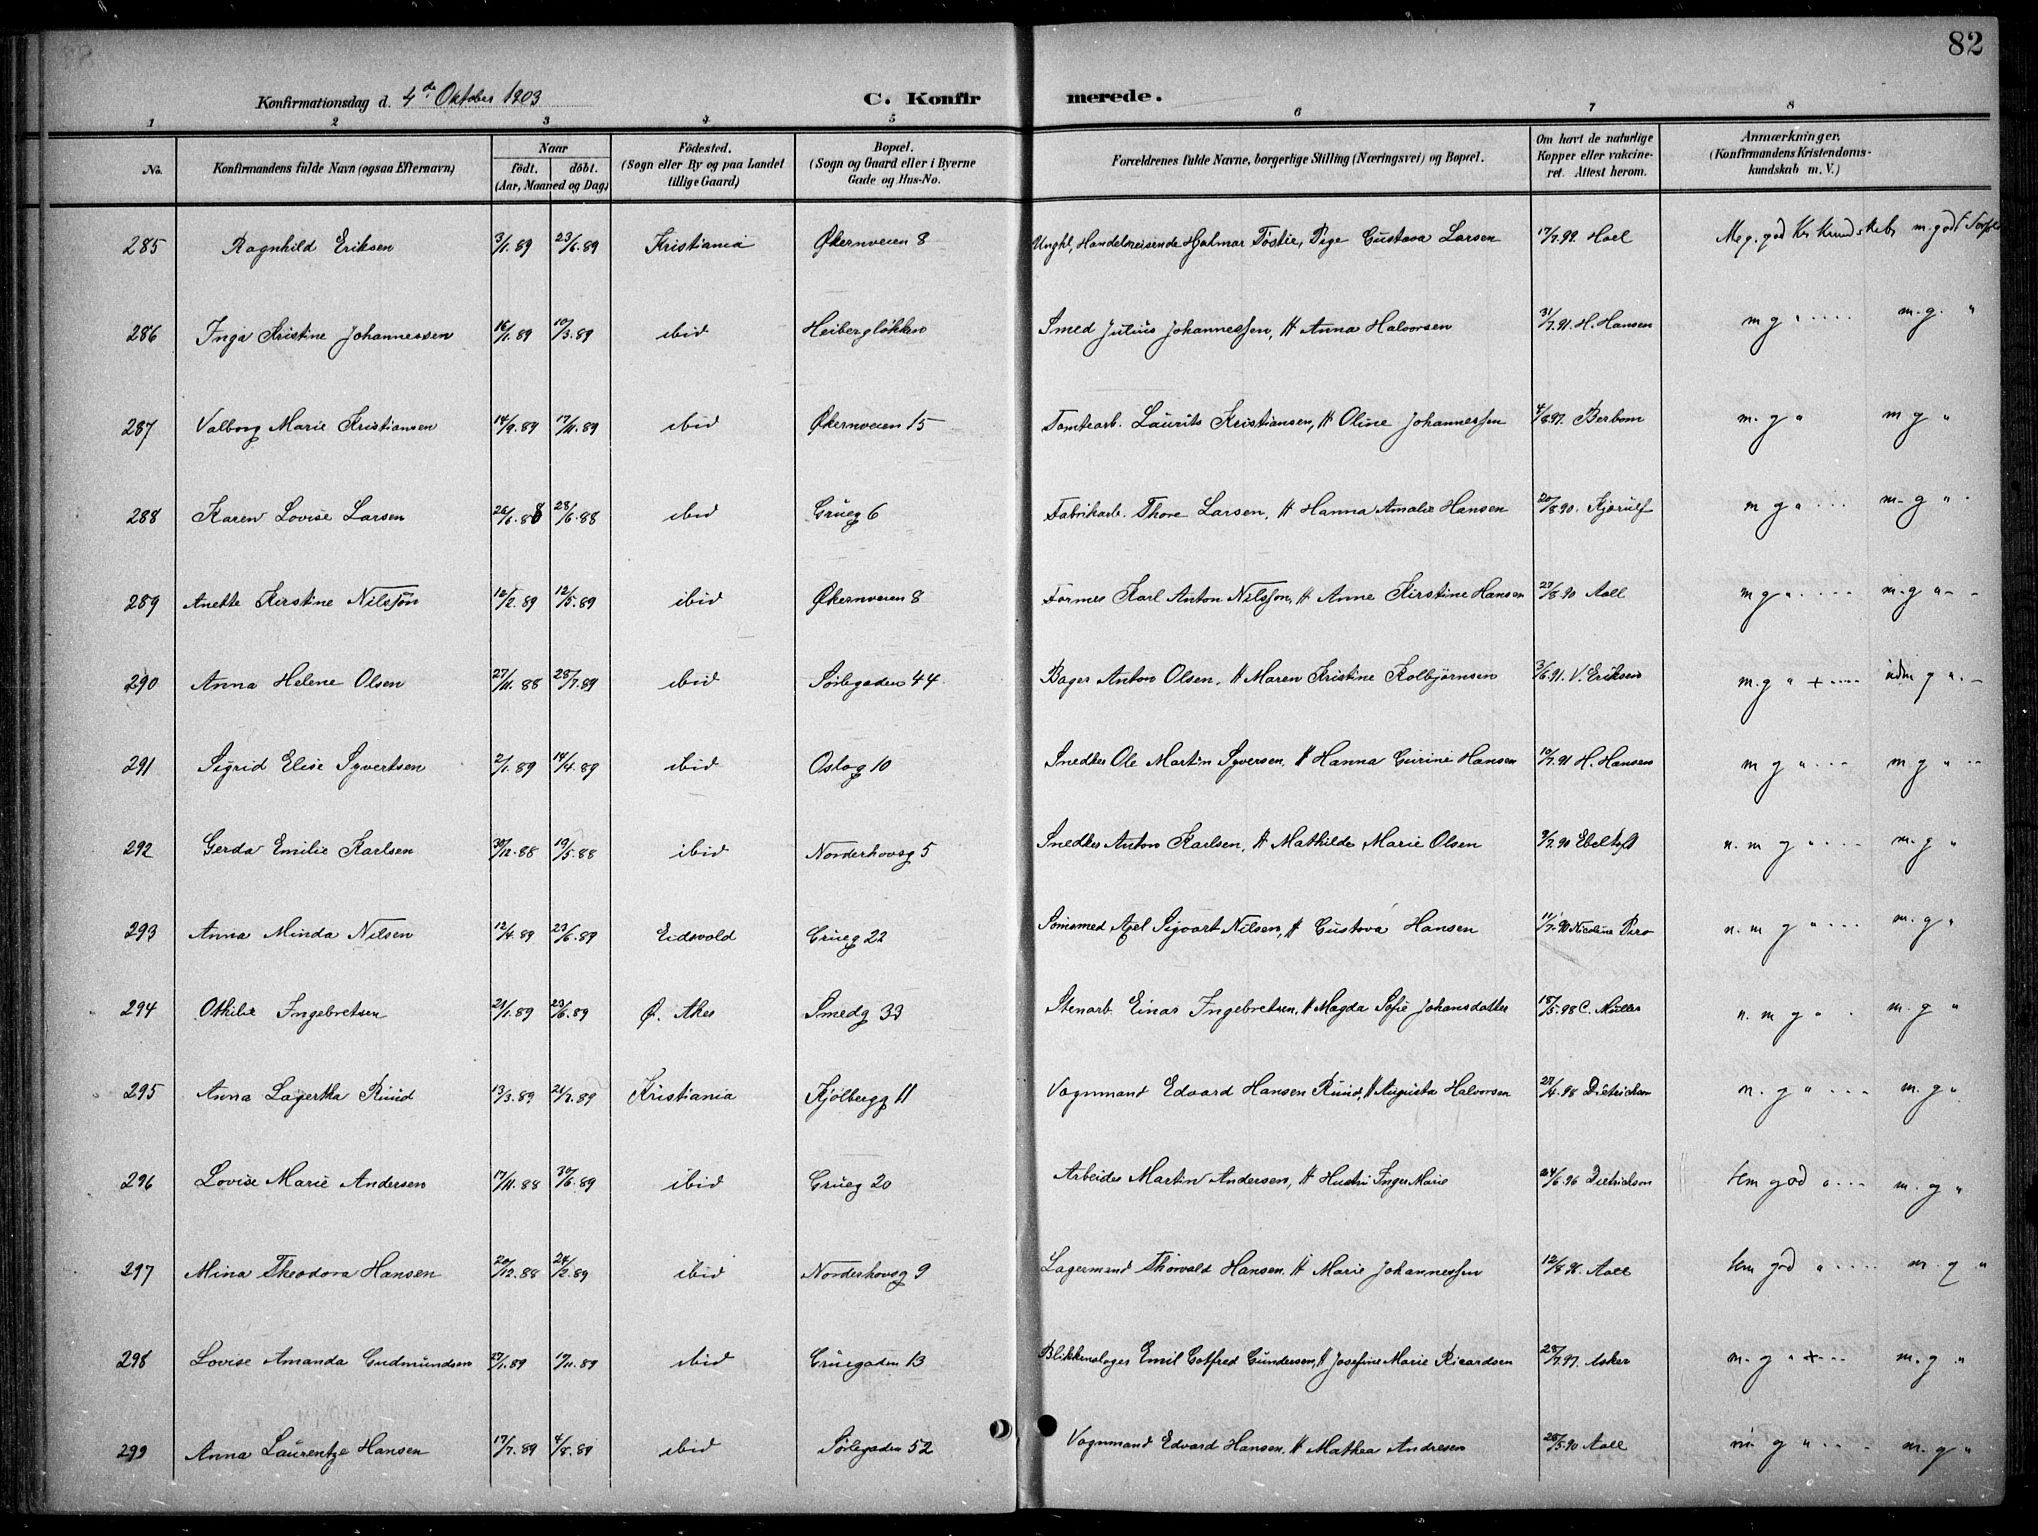 82
Konfirmationsdag d. 4de Oktober 1903 C. Konfirmerede.
1 2 3 4 5 6 7 8
No. Konfirmandens fulde Navn (ogsaa Efternavn) Naar født. døbt. (Aar, Maaned og Dag) Fødested. (Sogn eller By og paa Landet tillige Gaard) Bopæl. (Sogn og Gaard eller i Byerne Gade og Hus-No. Forældrenes fulde Navne, borgerlige Stilling (Næringsvei) og Bopæl. Om havt de naturlige Kopper eller vakcineret. Attest herom. Anmærkninger. (Konfirmandens Kristendomskundskab m. V.)
285 Ragnhild Eriksen 3/1.89 23/6.89 Kristiania Økernveien 8 Ungkl, Handelsreisende Hjalmar Tostie, Pige Gustava Larsen 17/7.99. Hoel Meg. god Kr Kundskab m. godt
286 Inga Kristine Johannessen 16/1.89 10/3.89 ibid Heibergløkken Smed Julius Johannessen, H Anna Halvorsen 31/7.91 H. Hansen m g " m. g. "
287 Valborg Marie Kristiansen 14/9.89 17/11.89 ibid Økernveien 15 Tomtearb. Laurits Kristiansen, H Oline Johannessen 4/8.97. Berbom m. g " m g "
288 Karen Lovise Larsen 26/6.88 28/6.88 ibid Grueg 6 Fabrikarb. Thore Larsen, H Hanna Amalie Hansen 20/8.90. Kjerulf m g " m. g "
289 Anette Kirstine Nilsson 12/2.89 12/5.89 ibid Økernveien 8 Former Karl Anton Nilsson, H Anne Kirstine Hansen 27/8.90 Aall m g " m. g "
290 Anna Helene Olsen 27/11.88 28/7.89 ibid Sørlegaden 44 Bager Anton Olsen, H Maren Kristine Kolbjørnsen 3/6.91. V. Eriksen m. g " + udm g "
291 Sigrid Elise Syvertsen 2/1.89 14/4.89 ibid Oslog 10 Snedker Ole Martin Syversen, H Hanna Gurine Hansen 10/7.91 H. Hansen m g " m g "
292 Gerda Emilie Karlsen 30/12.88 19/5.88 ibid Norderhovsg 5 Snedker Anton Karlsen, H Mathilde Marie Olsen 9/7.90 Ebeltoft n. m g " m. g "
293 Anna Minda Nilsen 12/4.89 23/6.89 Eidsvold Grueg 22 Sømsmed Axel Sigvart Nilsen, H Gustava Hansen 11/7.90 Nicoline Piro n. m g " m. g "
294 Othilie Ingebretsen 21/1.89 23/6.89 Ø. Aker Smedg 33 Stenarb Einar Ingebretsen, H Magda Sofie Johansdatter 18/5.98 C. Müller n. m g " m. g "
295 Anna Lagertha Ruud 13/3.89 21/7.89 Kristiania Kjølbergg 11 Vognmand Edvard Hansen Ruud, H Augusta Halvorsen 27/4.98 Dietrichson n. g " m. g "
296 Lovise Marie Andersen 17/11.88 30/6.89 ibid Grueg 20 Arbeider Martin Andersen, H Hustru Inger Marie 24/6.96 Dietrichson tem god " m. g "
297 Mina Theodora Hansen 20/12.88 24/2.89 ibid Norderhovsg 9 Lagermand Thorvald Hansen, H Marie Johannessen 12/8.96. Aall tem god " m. g "
298 Lovise Amanda Gudmundsen 27/1.89 17/11.89 ibid Gruegaden 13 Blikkenslager Emil Gotfred Gundersen, H Josefine Marie Ricardsen 28/7.97. Asker m. g " + m. g "
299 Anna Laurentze Hansen 17/7.89 4/8.89 ibid Sørlegaden 52 Vognmand Edvard Hansen, H Mathea Andresen 28/5.90 Aall m. g " m. g "